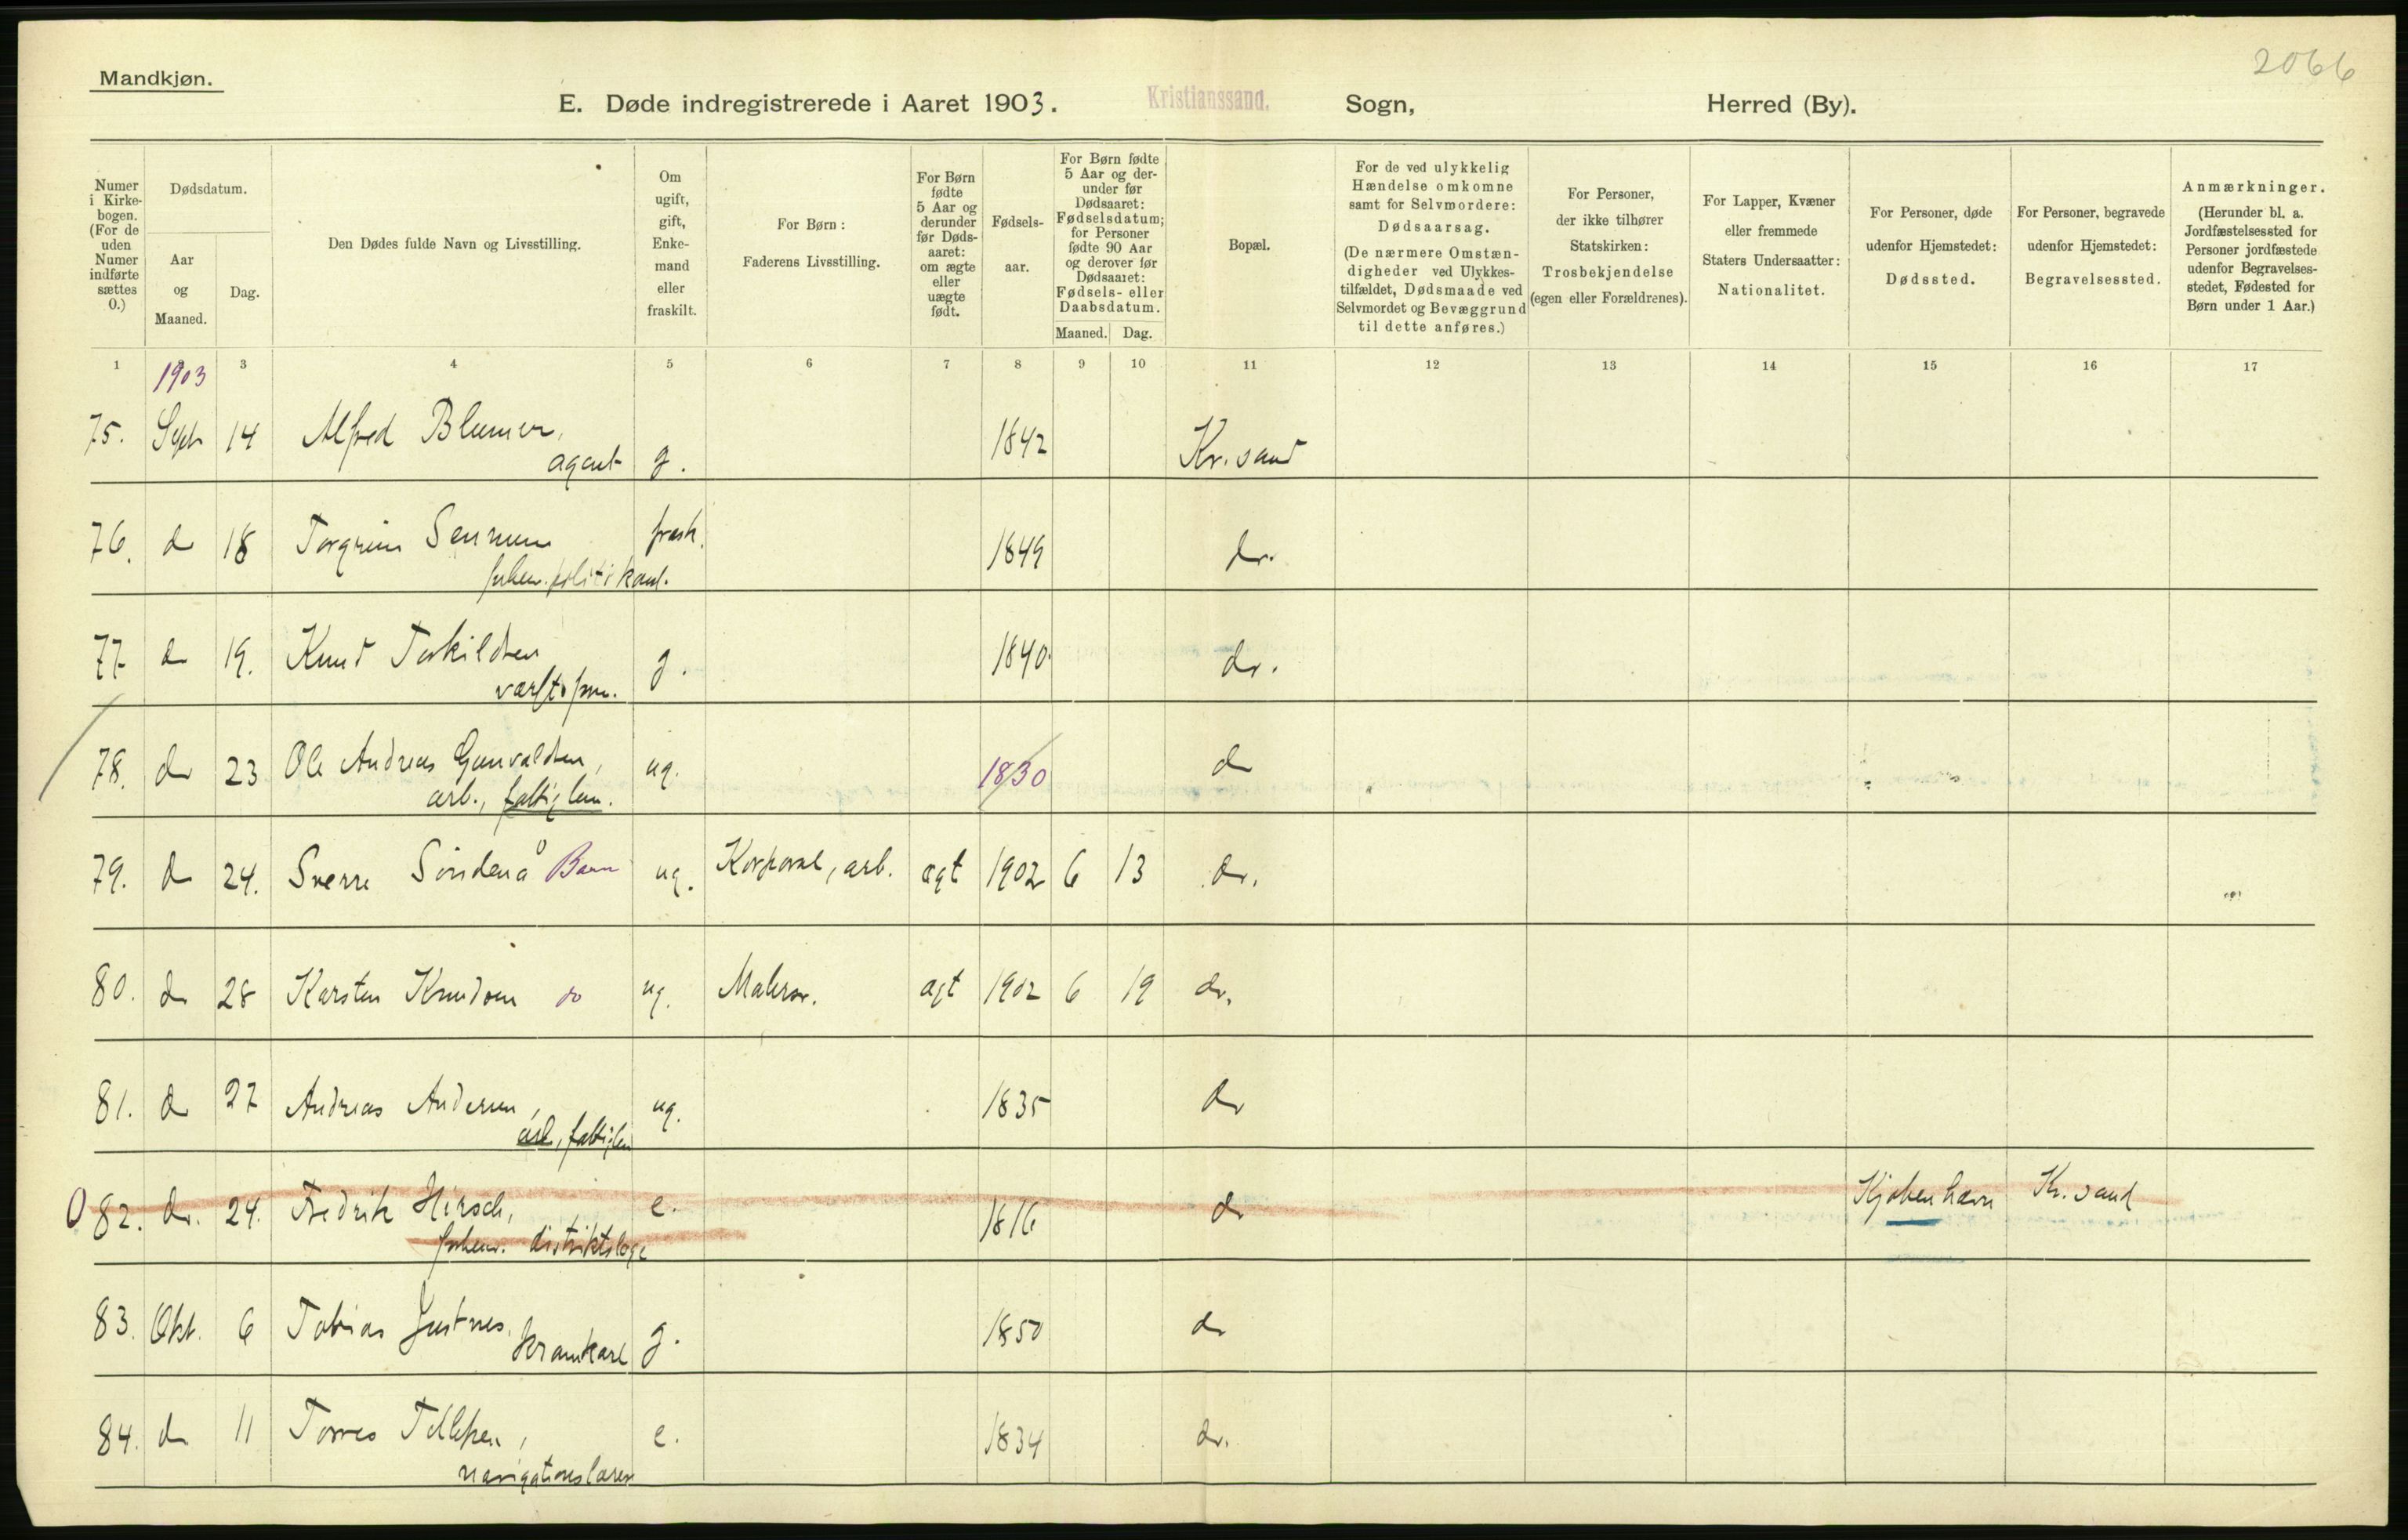 2066
Mandkjøn.
E. Døde indregistrerede i Aaret 1903. Kristianssand. Sogn, Herred (By).
Numer i Kirkebogen. (For de uden Numer indførte sættes 0.)
Dødsdatum.
Aar og Maaned.
Dag.
Den Dødes fulde Navn og Livsstilling.
Om ugift, gift, Enkemand eller fraskilt.
For Børn: Faderens Livsstilling.
For Børn fødte 5 Aar og derunder før Dødsaaret: om ægte eller uægte født.
Fødselsaar.
For Børn fødte 5 Aar og derunder før Dødsaaret: Fødselsdatum; for Personer fødte 90 Aar og derover før Dødsaaret: Fødsels- eller Daabsdatum.
Maaned. Dag.
Bopæl.
For de ved ulykkelig Hændelse omkomne samt for Selvmordere: Dødsaarsag. (De nærmere Omstændigheder ved Ulykkestilfældet, Dødsmaade ved Selvmordet og Bevæggrund til dette anføres.)
For Personer, der ikke tilhører Statskirken: Trosbekjendelse (egen eller Forældrenes).
For Lapper, Kvæner eller fremmede Staters Undersaatter: Nationalitet.
For Personer, døde udenfor Hjemstedet: Dødssted.
For Personer, begravede udenfor Hjemstedet: Begravelsessted.
Anmærkninger. (Herunder bl. a. Jordfæstelsessted for Personer jordfæstede udenfor Begravelsesstedet, Fødested for Børn under 1 Aar.)
1 3 4 5 6 7 8 9 10 11 12 13 14 15 16 17
1903
75. Sept 14 Alfred Blumer, 1842 Kr.sand
agent g.
76. do 18 Torgrim Sennum frask. 1849 do.
forhen. politikonst.
77 do 19. Knud Torkildsen g. 1840 do.
værftsfm.
78. do 23 Ole Andreas Gunvaldsen, ug. 1830 do
arb., fattiglem.
79. do 24. Sverre Söndenå Barn ug. Korporal, arb. ægt 1902 6 13 do.
80. do 28 Karsten Knudsen do ug. Malersv. ægt 1902 6 19 do.
81. do 27 Andreas Andersen, ug. 1835 do
arb, fattiglem
0 82. do. 24. Fredrik Hirsch, e. 1816 do Kjøbenhavn Kr.sand
forhenv. distriktslæge
83. Okt. 6 Tobias Justnes, g. 1850 do
krankarl
84. do 11 Torres Tellefsen, e. 1834 do.
navigationslærer